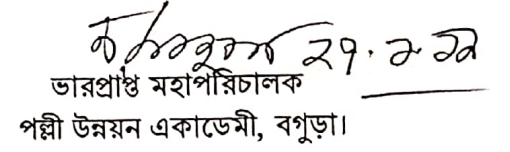 ২৭.৮.১৯
ভারপ্রাপ্ত মহাপরিচালক
পল্লী উন্নয়ন একাডেমী, বগুড়া।